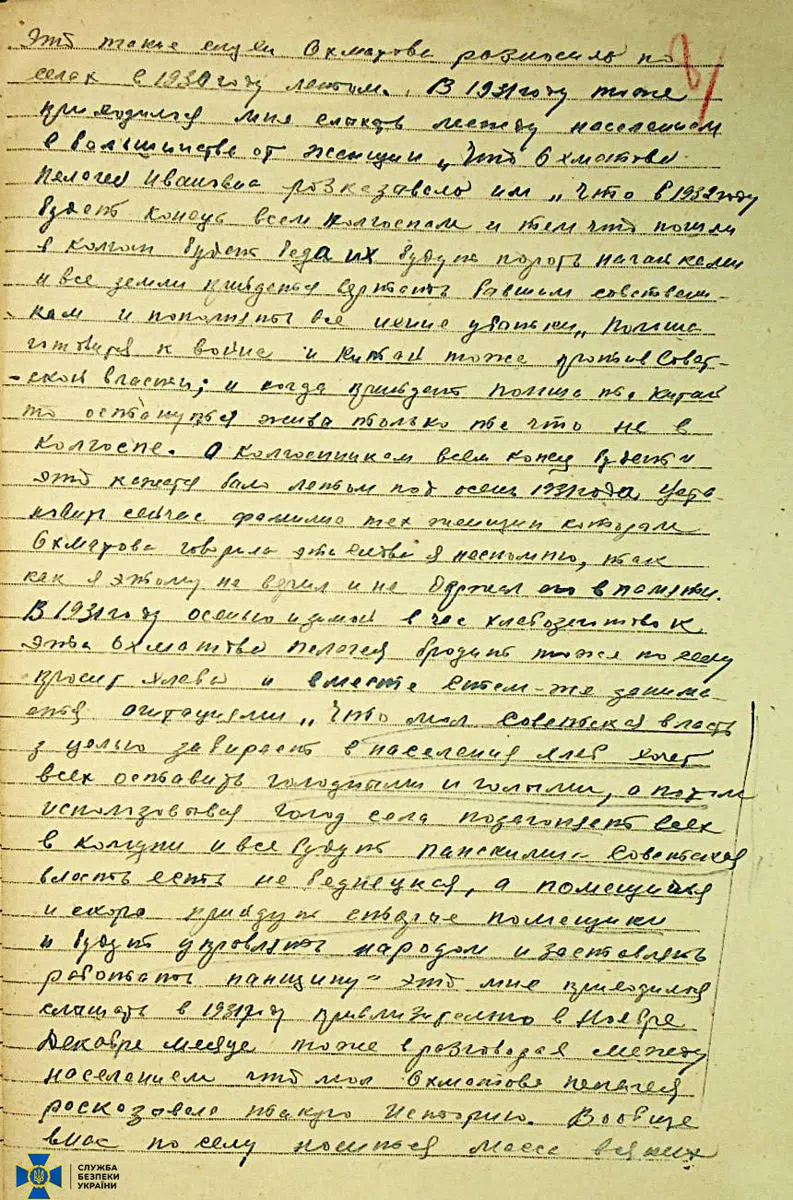 Это такие слухи Охматова розносила по
селах в 1930 году летом. В 1931 году тоже
приходилося мне слихать между населением
в большинстве от женщин „Что Охматова
Пелагея Ивановна розказавала им „что в 1932 году
будет конец всем колгоспам и тем что пошли
в колгосп будет беда их будут пороть нагайками
и все земли придется вертать бывшим собствени-
кам и пополнять все ихние убытки„ Польша
готовится к войне и Китай тоже против Совет-
ской власти; и когда прийдет Польша та Китай
то останутся жива только те что не в
колгоспе. а колгоспникам всем конец будет и
это кажется было летом под осень 1931 года уста-
новить сейчас фамилие тех женщин которам
Охматова говорила эти слова я неспомню, так
как я этому не верил и не держал его в памяти.
В 1931 году осенью и зимой в час хлебозаготовок
эта Охматова Пелагея бродит тоже по селу
просит хлеба и вместе с тем-же занима-
ется агитациями „Что мол Советская власть
з целью забирает в населения хлеб хочет
всех оставить голодными и голыми, а потом
использовывая голод села позагоняет всех
в комуни и все будут панскими Советская
власть есть не беднецкая, а помещичья
и скоро прийдут старие помещики
и будут управлять народом и заставлять
работать панщину" это мне приходилося
слишать в 1931 году приблизительно в Ноябре
Декабре месяце тоже в розговорах между
населением что мол Охматова Пелагея
росказавала такую историю. Вообще
в нас по селу носиться масса всяких
СЛУЖБА
БЕЗПЕКИ
УКРАЇНИ